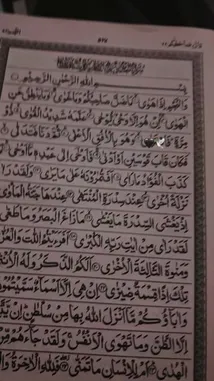 بِسْمِ اللهِ الرَّحْمٰنِ الرَّحِيْمِ
وَالنَّجْمِ اِذَا هَوٰى مَا ضَلَّ صَاحِبُكُمْ وَمَا غَوٰى وَمَا يَنْطِقُ عَنِ
الْهَوٰى اِنْ هُوَ اِلَّا وَحْىٌ يُّوْحٰى عَلَّمَهٗ شَدِيْدُ الْقُوٰى ذُوْ
مِرَّةٍ وَهُوَ بِالْاُفُقِ الْاَعْلٰى ثُمَّ دَنَا فَتَدَلّٰى
فَكَانَ قَابَ قَوْسَيْنِ اَوْ اَدْنٰى فَاَوْحٰٓى اِلٰى عَبْدِهٖ مَآ اَوْحٰى
كَذَبَ الْفُؤَادُ مَا رَاٰى اَفَتُمٰرُوْنَهٗ عَلٰى مَا يَرٰى
نَزْلَةً اُخْرٰى عِنْدَ سِدْرَةِ الْمُنْتَهٰى عِنْدَهَا جَنَّةُ الْمَاْوٰى
اِذْ يَغْشَى السِّدْرَةَ مَا يَغْشٰى مَا زَاغَ الْبَصَرُ وَمَا طَغٰى
لَقَدْ رَاٰى مِنْ اٰيٰتِ رَبِّهِ الْكُبْرٰى اَفَرَءَيْتُمُ اللّٰتَ وَالْعُزّٰى
وَمَنٰوةَ الثَّالِثَةَ الْاُخْرٰى اَلَكُمُ الذَّكَرُ وَلَهُ الْاُنْثٰى
تِلْكَ اِذًا قِسْمَةٌ ضِيْزٰى اِنْ هِىَ اِلَّآ اَسْمَآءٌ سَمَّيْتُمُوْهَآ
وَاٰبَآؤُكُمْ مَّآ اَنْزَلَ اللهُ بِهَا مِنْ سُلْطٰنٍ اِنْ
الظَّنَّ وَمَا تَهْوَى الْاَنْفُسُ وَلَقَدْ جَآءَهُمْ مِّنْ
الْهُدٰى اَمْ لِلْاِنْسَانِ مَا تَمَنّٰى فَلِلّٰهِ الْاٰخِرَةُ